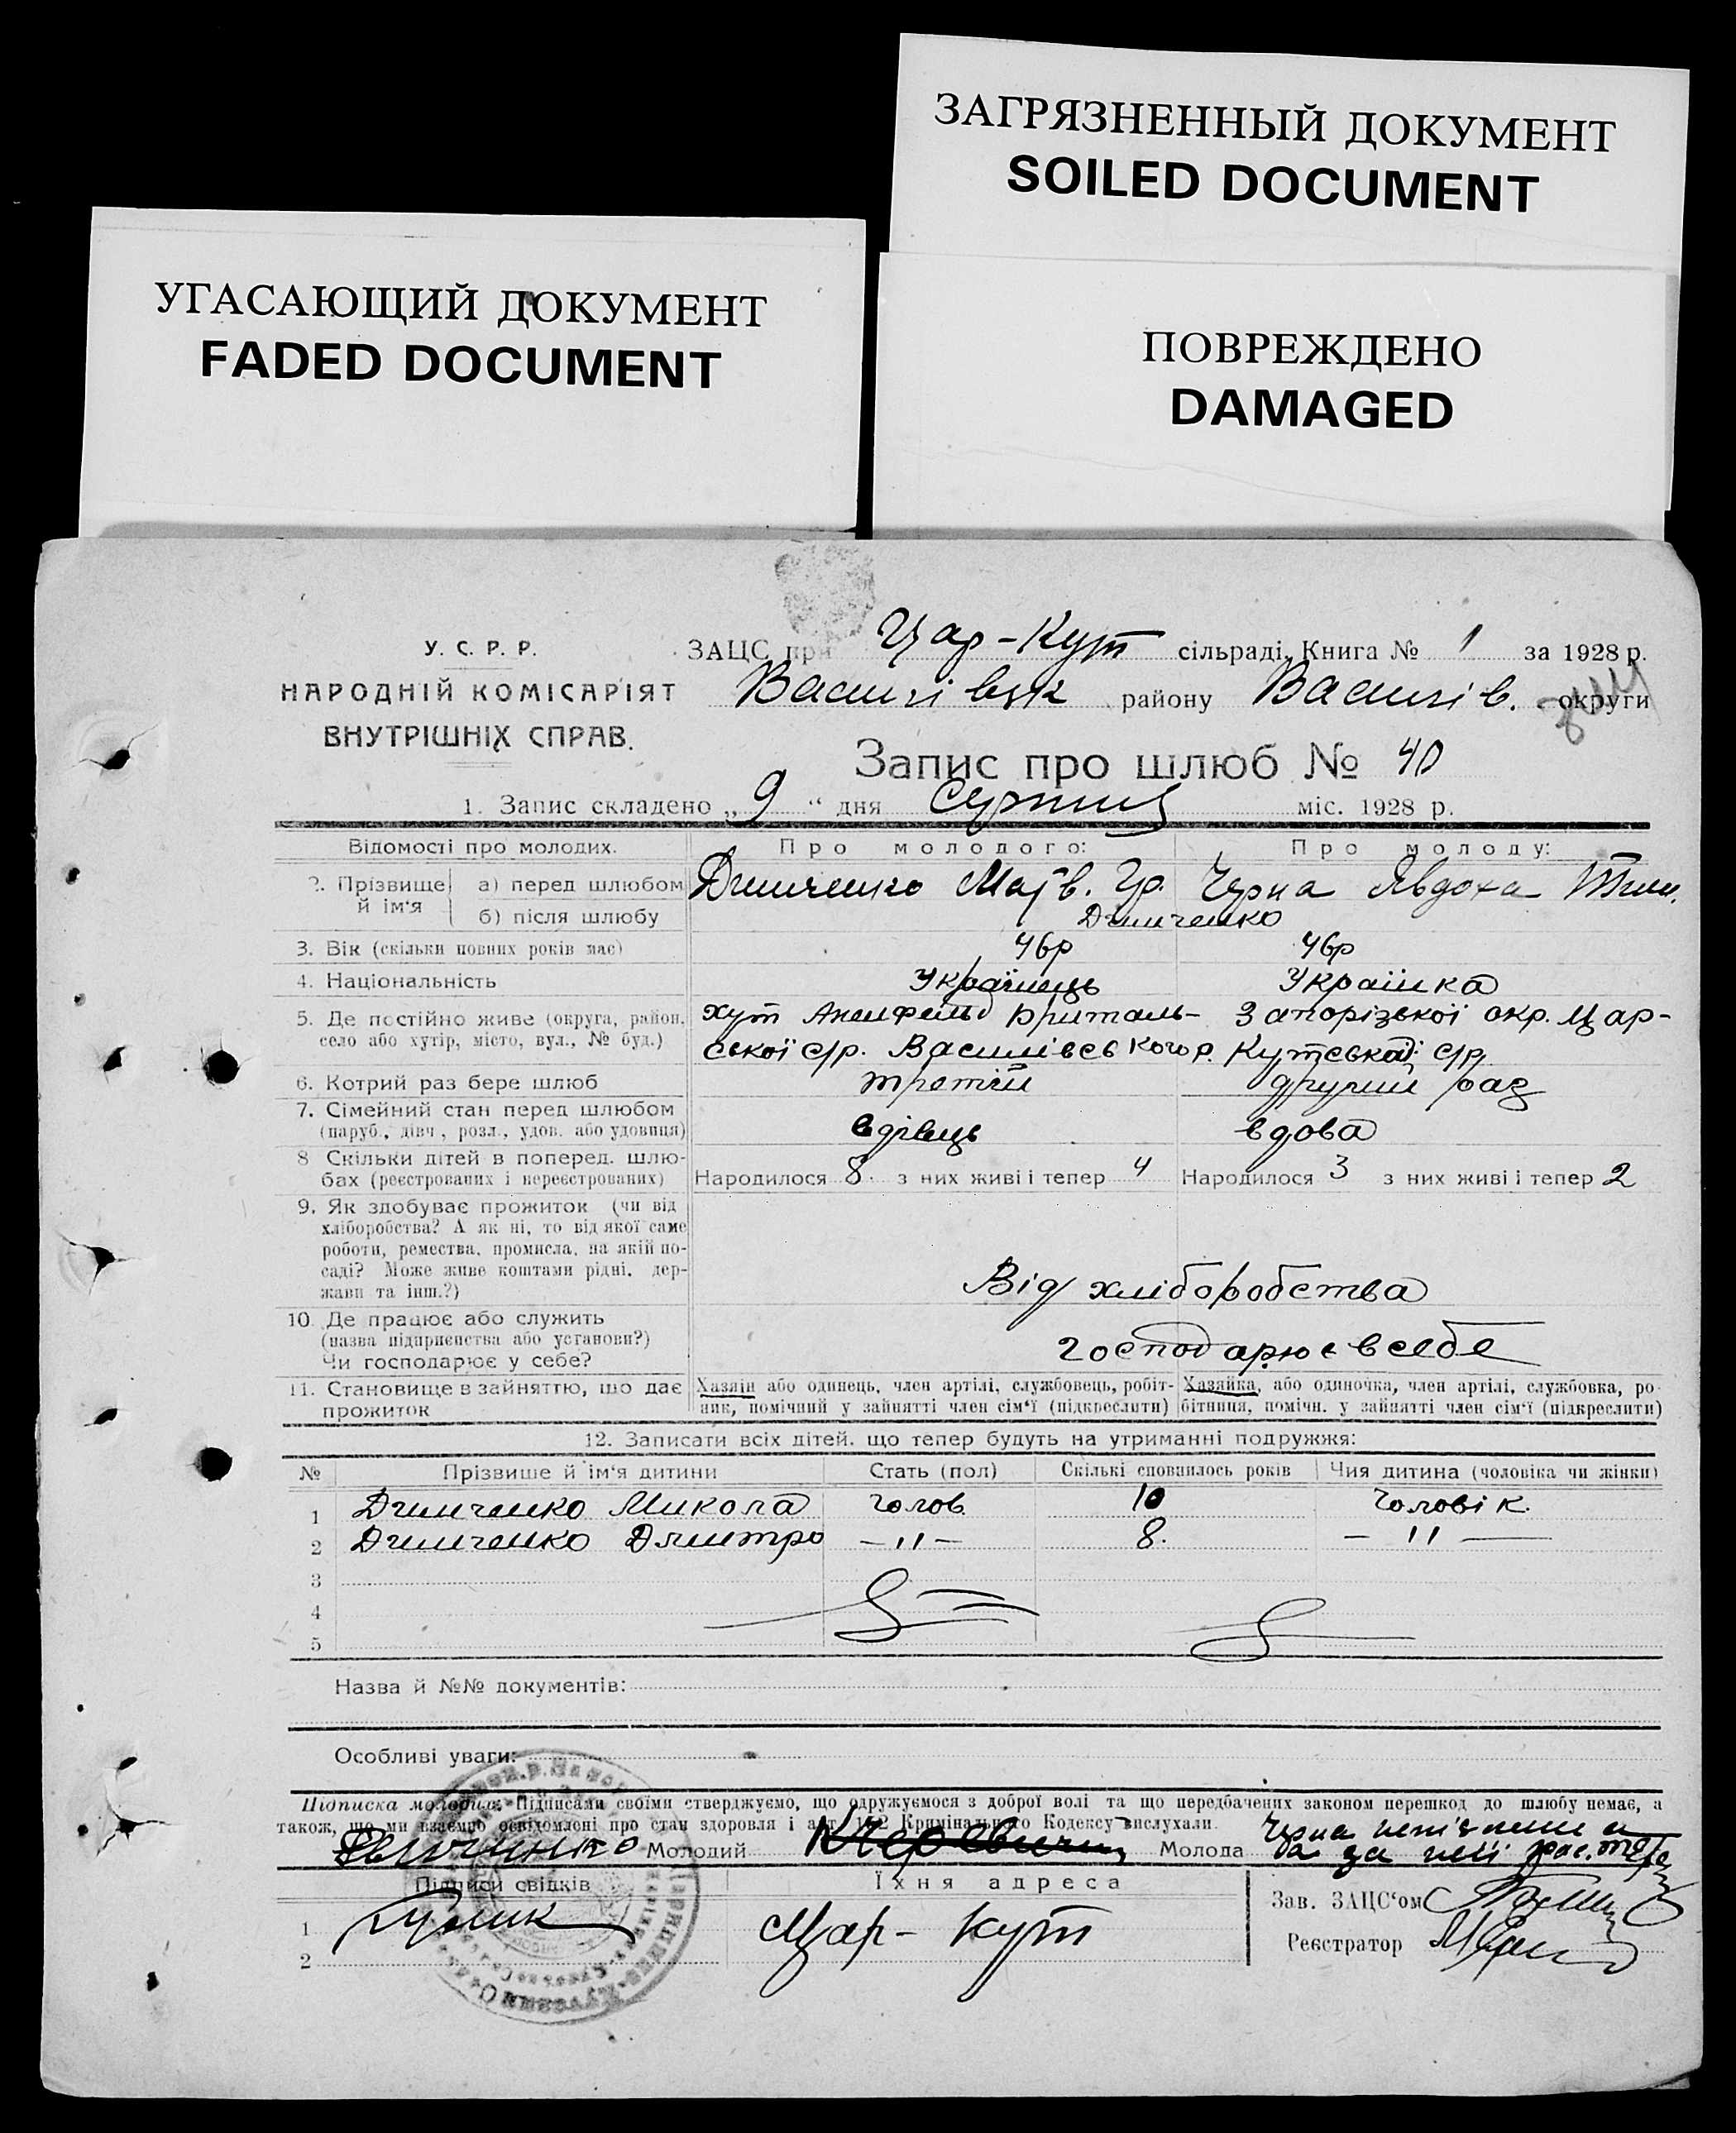 ЗАГРЯЗНЕННЫЙ ДОКУМЕНТ
SOILED DOCUMENT
УГАСАЮЩИЙ ДОКУМЕНТ
FADED DOCUMENT
ПОВРЕЖДЕНО
DAMAGED
У. С. Р. Р.
НАРОДНІЙ КОМІСАРІЯТ
ВНУТРІШНІХ СПРАВ.
ЗАЦС при Цар-Кут сільраді, Книга № 1 за 1928 р.
Василівськ району Василів. округи
Запис про шлюб № 40
1. Запис складено „9“ дня Серпня міс. 1928 р.
Відомості про молодих.
Про молодого:
Про молоду:
2. Прізвище й ім'я
а) перед шлюбом
Дяниченко Матв. Гр.
Черна Явдоха Тим.
б) після шлюбу
Дяниченко
3. Вік (скільки повних років має)
46р
46р
4. Національність
Українець
Українка
5. Де постійно живе (округа, район, село або хутір, місто, вул., № буд.)
хут Аненфельд Бриталь-
ської с/р. Василівськогор.
Запорізської окр. Цар-
Кутської с/р
6. Котрий раз бере шлюб
третій
другий раз
7. Сімейний стан перед шлюбом
(паруб., дівч, розл., удов. або удовиця)
вдівець
вдова
8 Скільки дітей в поперед. шлю-
бах (реєстрованих і нереєстрованих)
Народилося 8. з них живі і тепер 4
Народилося 3 з них живі і тепер 2
9. Як здобуває прожиток (чи від
хліборобства? А як ні, то від якої саме
роботи, ремества, промисла, на якій по-
саді? Може живе коштами рідні, дер-
жави та інш.?)
Від хліборобства
10. Де працює або служить
(назва підприємства або установи?)
Чи господарює у себе?
господарює в себе
11. Становище в зайняттю, що дає
прожиток
Хазяїн або одинець, член артілі, службовець, робіт-
ник, помічний у зайнятті член сім'ї (підкреслити)
Хазяйка, або одиночка, член артілі, службовка, ро-
бітниця, помічн. у зайнятті член сім'ї (підкреслити)
12. Записати всіх дітей. що тепер будуть на утриманні подружжя:
№ Прізвише й ім'я дитини Стать (пол) Скількі сповнилось років Чия дитина (чоловіка чи жінки)
1 Дяниченко Микола чолов. 10 Чоловік.
2 Дяниченко Дмитро —〃— 8. —〃—
3
4
5
Назва й №№ документів:
Особливі уваги:
Підписка молодих: Підписами своїми стверджуємо, що одружуємося з доброї волі та що передбачених законом перешкод до шлюбу немає, а
також, що ми взаємно освідомлені про стан здоров'я і арт. 152 Кримінального Кодексу вислухали.
Молодий Молода Черна
за неї
Підписи свідків
Їхня адреса
Зав. ЗАЦС'ом
1 Цар-Кут
Реєстратор
2